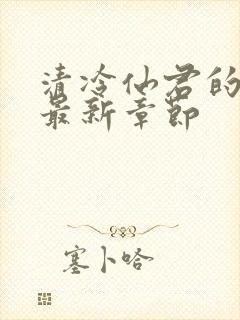 清冷仙君的
最新章节
塞卜哈